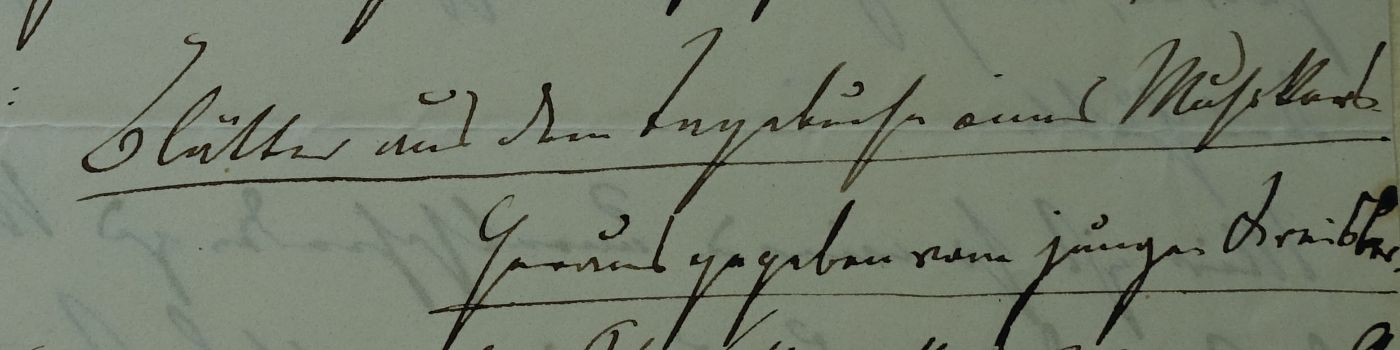 Blätter aus dem Tagebuche eines Musikers
Herausgegeben vom jungen Kreisler